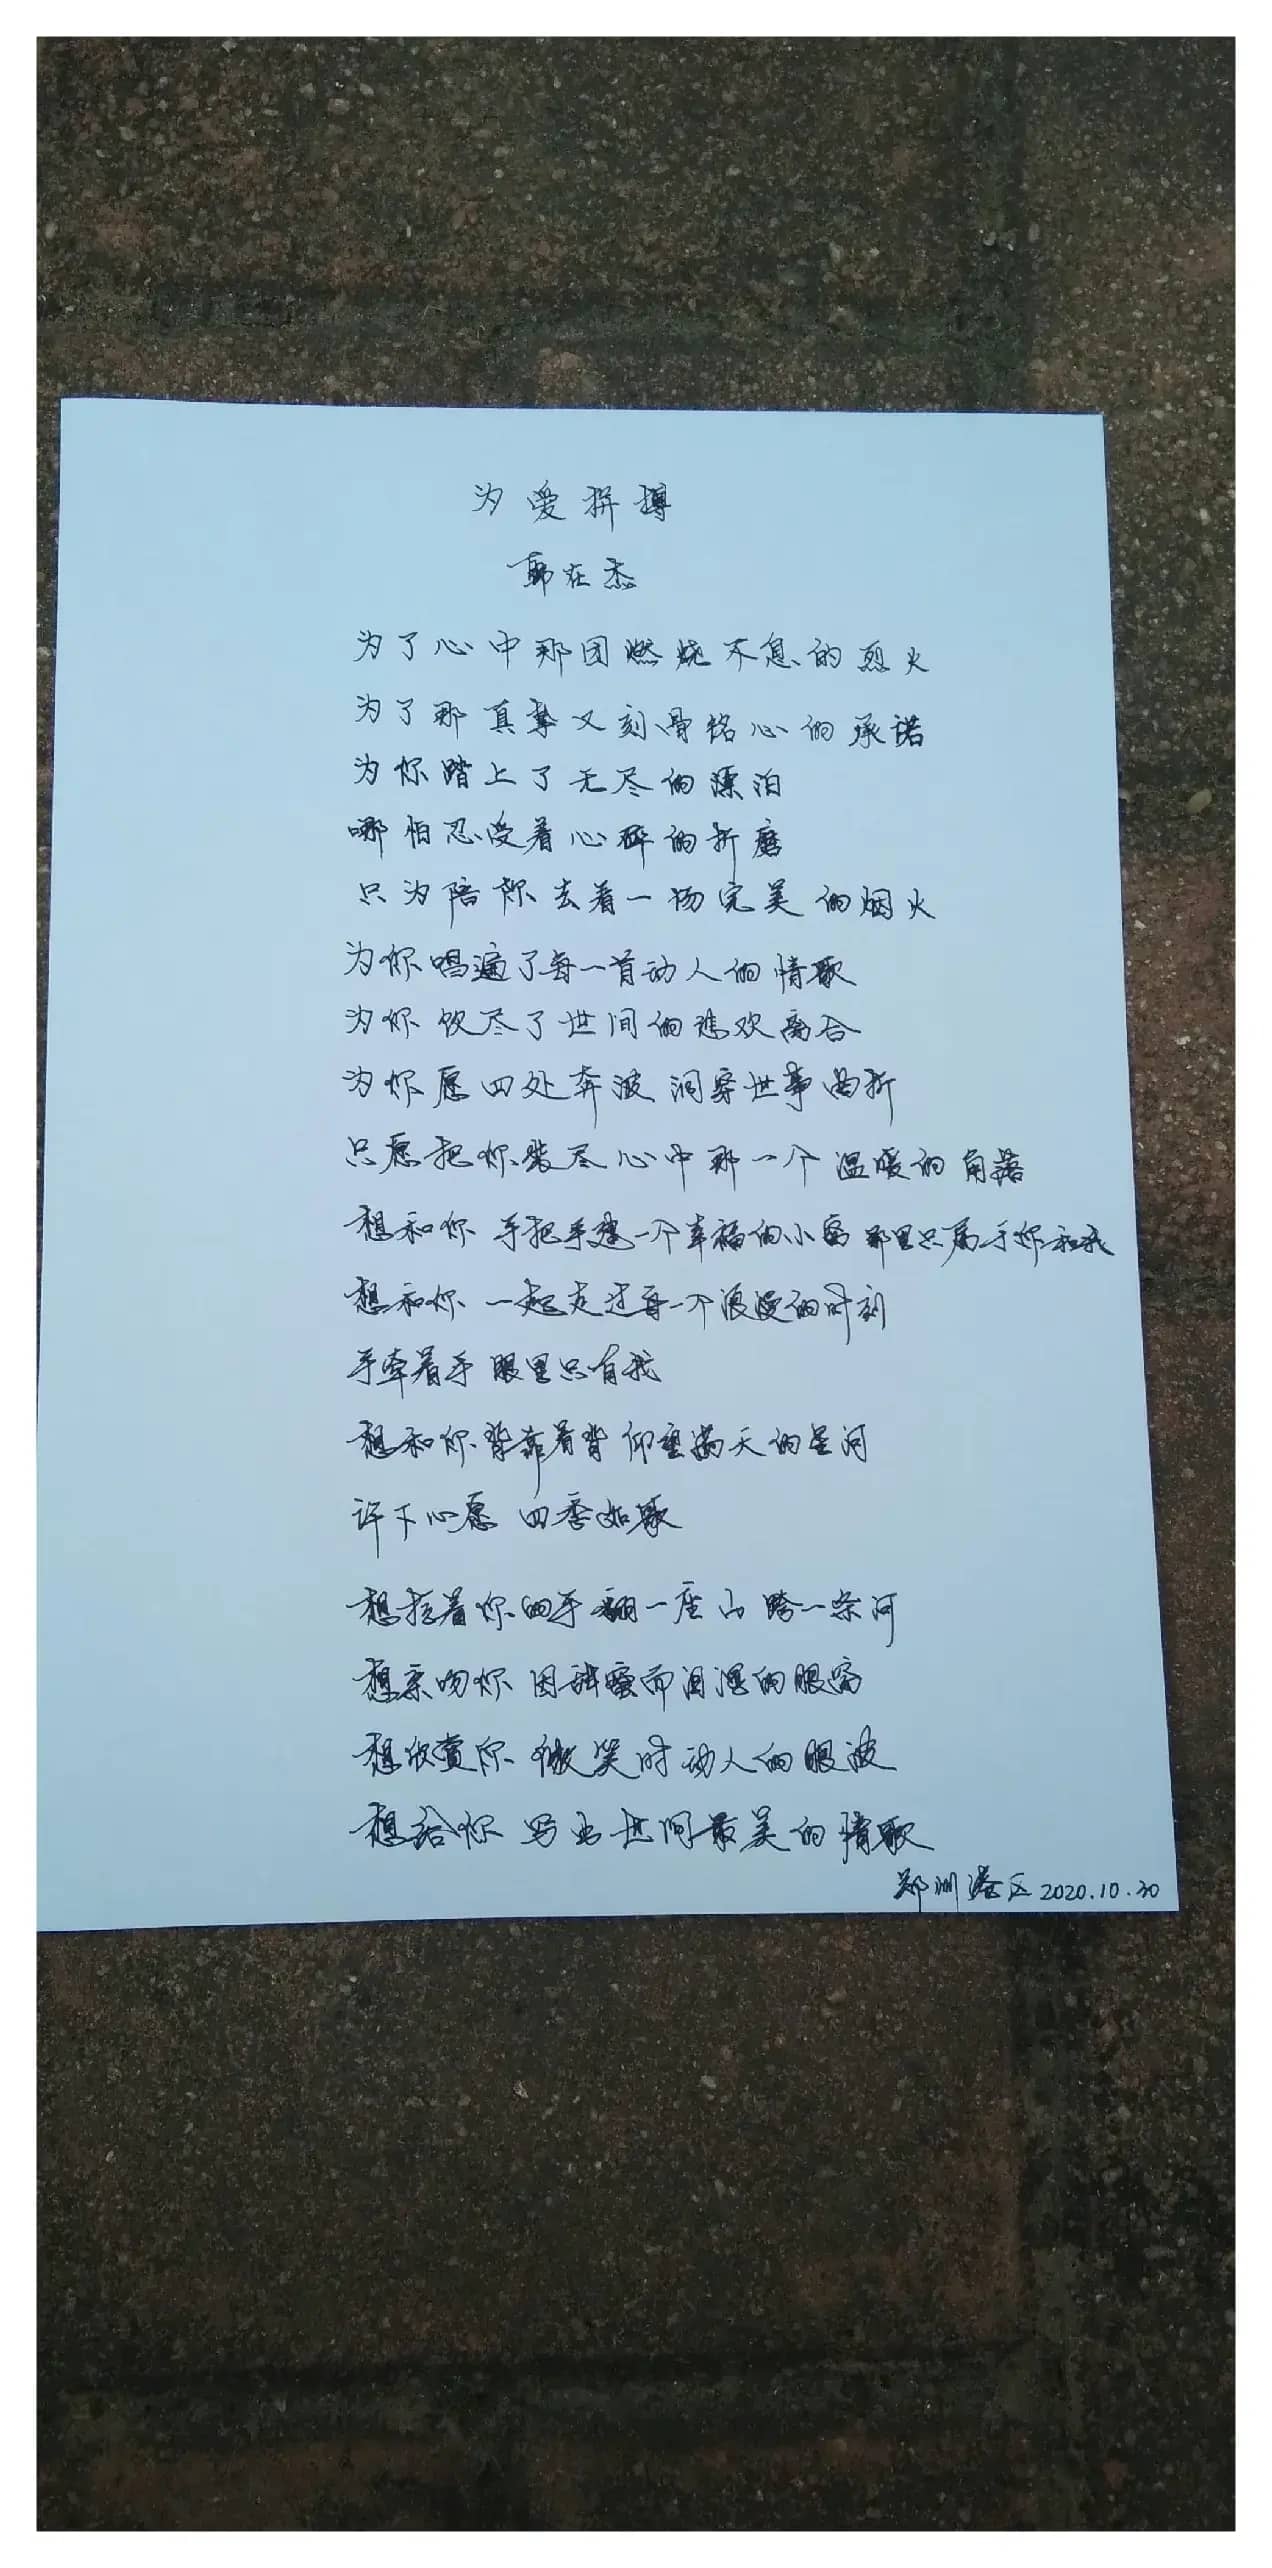 为爱拼搏
韩在杰
为了心中那团燃烧不息的烈火
为了那真挚又刻骨铭心的承诺
为你踏上了无尽的漂泊
哪怕忍受着心碎的折磨
只为陪你去看一场完美的烟火
为你唱遍了每一首动人的情歌
为你饮尽了世间的悲欢离合
为你愿四处奔波 洞穿世事曲折
只愿把你装尽心中那一个温暖的角落
想和你 手把手建一个幸福的小窝 那里只属于你和我
想和你 一起走过每一个浪漫的时刻
手牵着手 眼里只有我
想和你背靠着背 仰望满天的星河
许下心愿 四季如歌
想拉着你的手 翻一座山 跨一条河
想亲吻你 因甜蜜而泪湿的眼窝
想欣赏你 微笑时动人的眼波
想给你 写出世间最美的情歌
郑州港区 2020.10.30